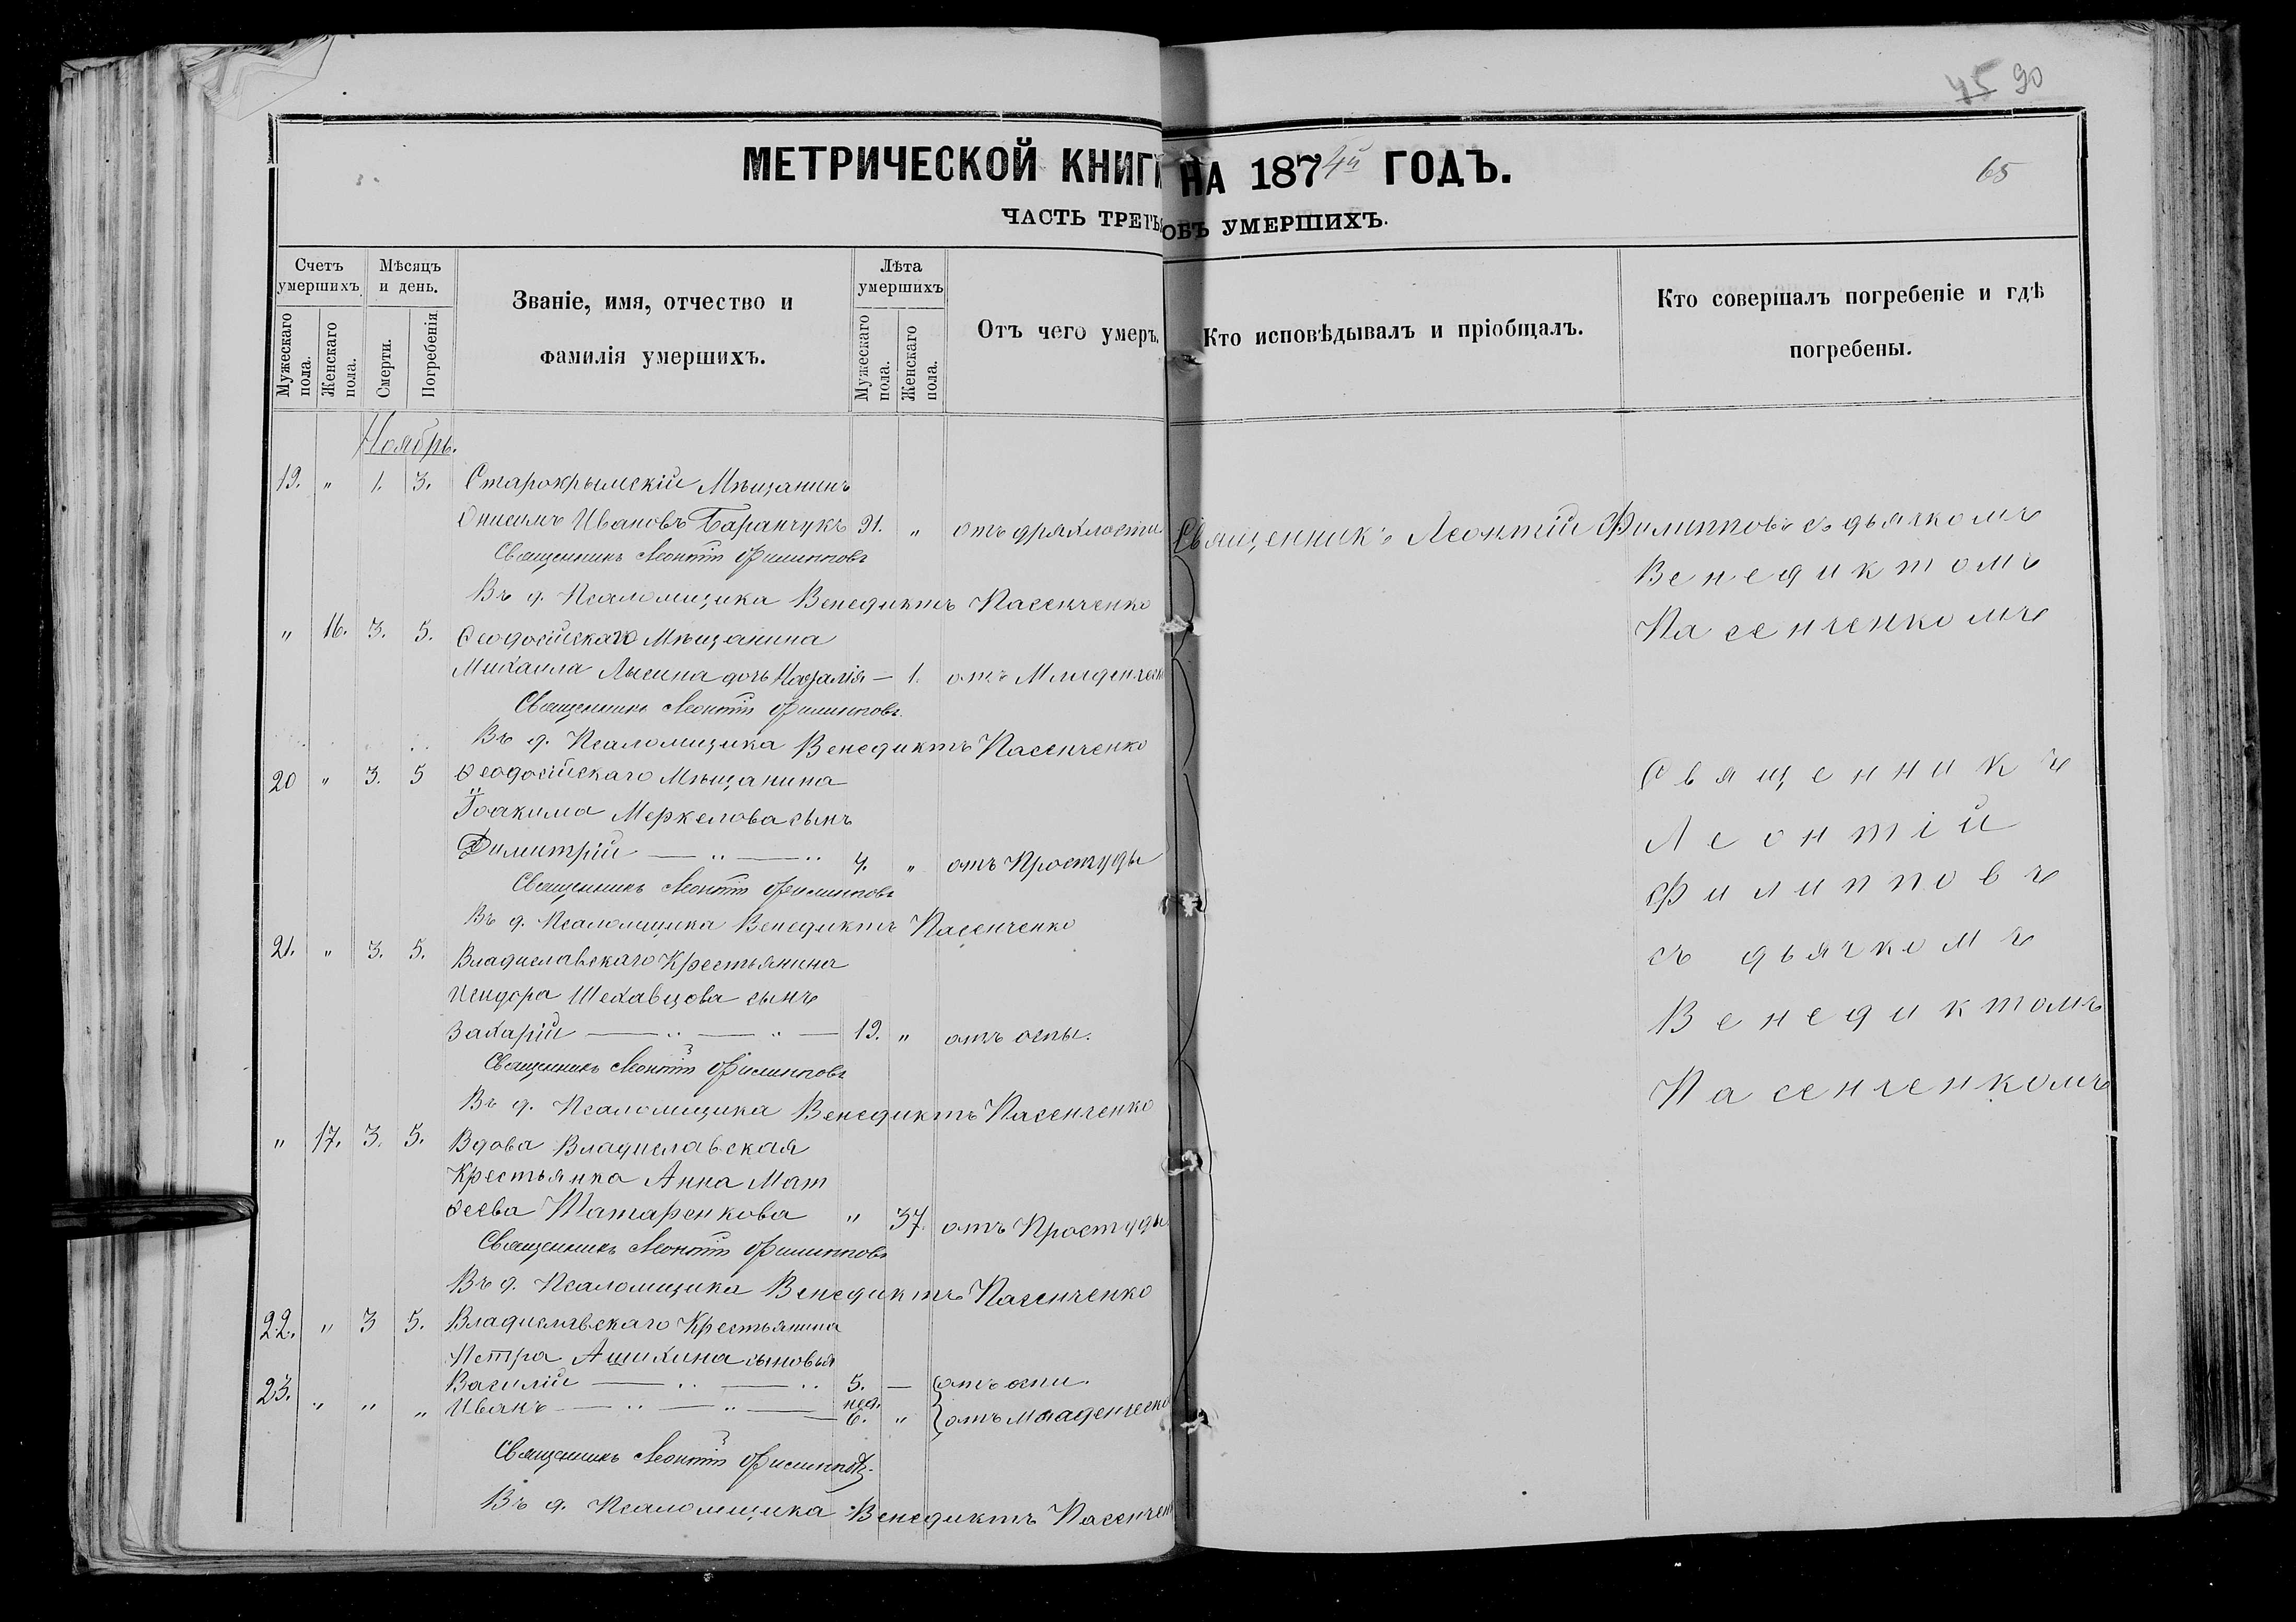 45 90
МЕТРИЧЕСКОЙ КНИГИ НА 1874й ГОДЪ.
65
ЧАСТЬ ТРЕТЬЯ ОБЪ УМЕРШИХЪ.
Счетъ умершихъ
Мужескаго пола.
Женскаго пола.
Мѣсяцъ и день.
Смерти.
Погребенія
Званіе, имя, отчество и
фамилія умершихъ.
Лѣта умершихъ
Мужескаго пола.
Женскаго пола.
Отъ чего умеръ.
Кто исповѣдывалъ и пріобщалъ.
Кто совершалъ погребеніе и гдѣ
погребены.
Ноябрь.
19. " 1. 3. Старокрымскій Мѣщанинъ
Онисимъ Ивановъ Баранчукъ 91. " отъ дряхлости Священникъ Леонтій Филипповъ съ дьячкомъ
Священникъ Леонтій Филипповъ
Венедиктомъ
Въ д. Псаломщика Венедиктъ Пасенченко
Пасенченкомъ
" 16. 3. 5. Ѳеодосійскаго Мѣщанина
Михаила Лысина дочь Наталія — 1. отъ Младенческ
Священникъ Леонтій Филипповъ.
Въ д. Псаломщика Венедиктъ Пасенченко
20 " 3. 5 Ѳеодосійскаго Мѣщанина
Священникъ
Іоакима Меркелова сынъ
Леонтій
Димитрій — " — " 4. " отъ Простуды
Священникъ Леонтій Филипповъ
Филипповъ
Въ д. Псаломщика Венедиктъ Пасенченко
21. " 3. 5. Владиславскаго Крестьянина
съ дьячкомъ
Исидора Шехавцова сынъ
Венедиктомъ
Захарій — " — " — 19. " отъ оспы.
Священникъ Леонтій Филипповъ
Пасенченкомъ
Въ д. Псаломщика Венедиктъ Пасенченко
" 17. 3. 5. Вдова Владиславская
Крестьянка Анна Мат
ѳеева Татаренкова " 37. отъ Простуды
Священникъ Леонтій Филипповъ
Въ д. Псаломщика Венедиктъ Пасенченко
22. " 3 5. Владиславскаго Крестьянина
Петра Ашихина сыновья
Василій — " — " 5. — отъ оспи.
23. " " " Иванъ — " — " — нед. 6. " отъ Младенческо
Священникъ Леонтій Филипповъ.
Въ д. Псаломщика Венедиктъ Пасенчен